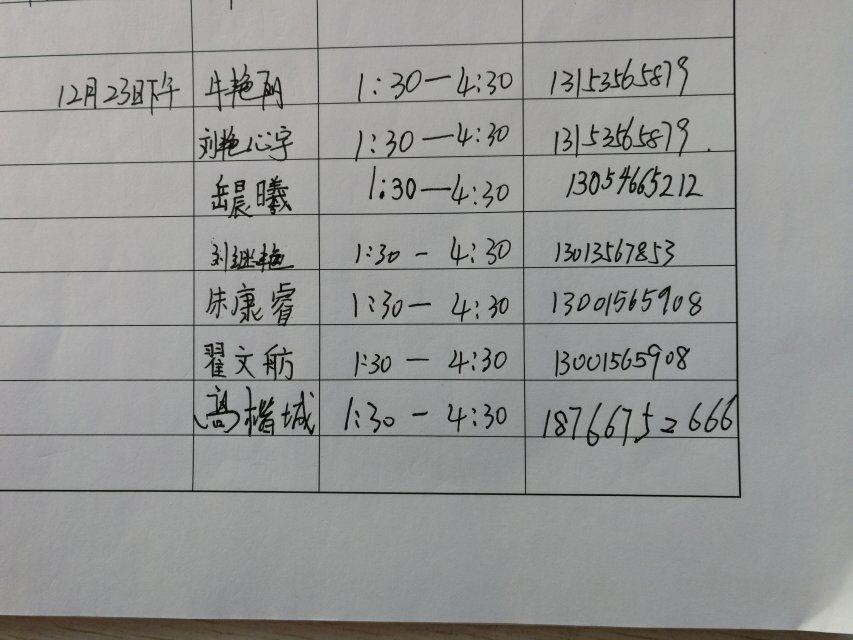 12月23日下午 牛艳丽 1:30—4:30 13153565879
刘艳心宇 1:30—4:30 13153565879.
岳晨曦 1:30—4:30 13054665212
刘继艳 1:30-4:30 13013567853
朱康睿 1:30—4:30 13001565908
翟文舫 1:30—4:30 13001565908
高楷城 1:30-4:30 18766752666